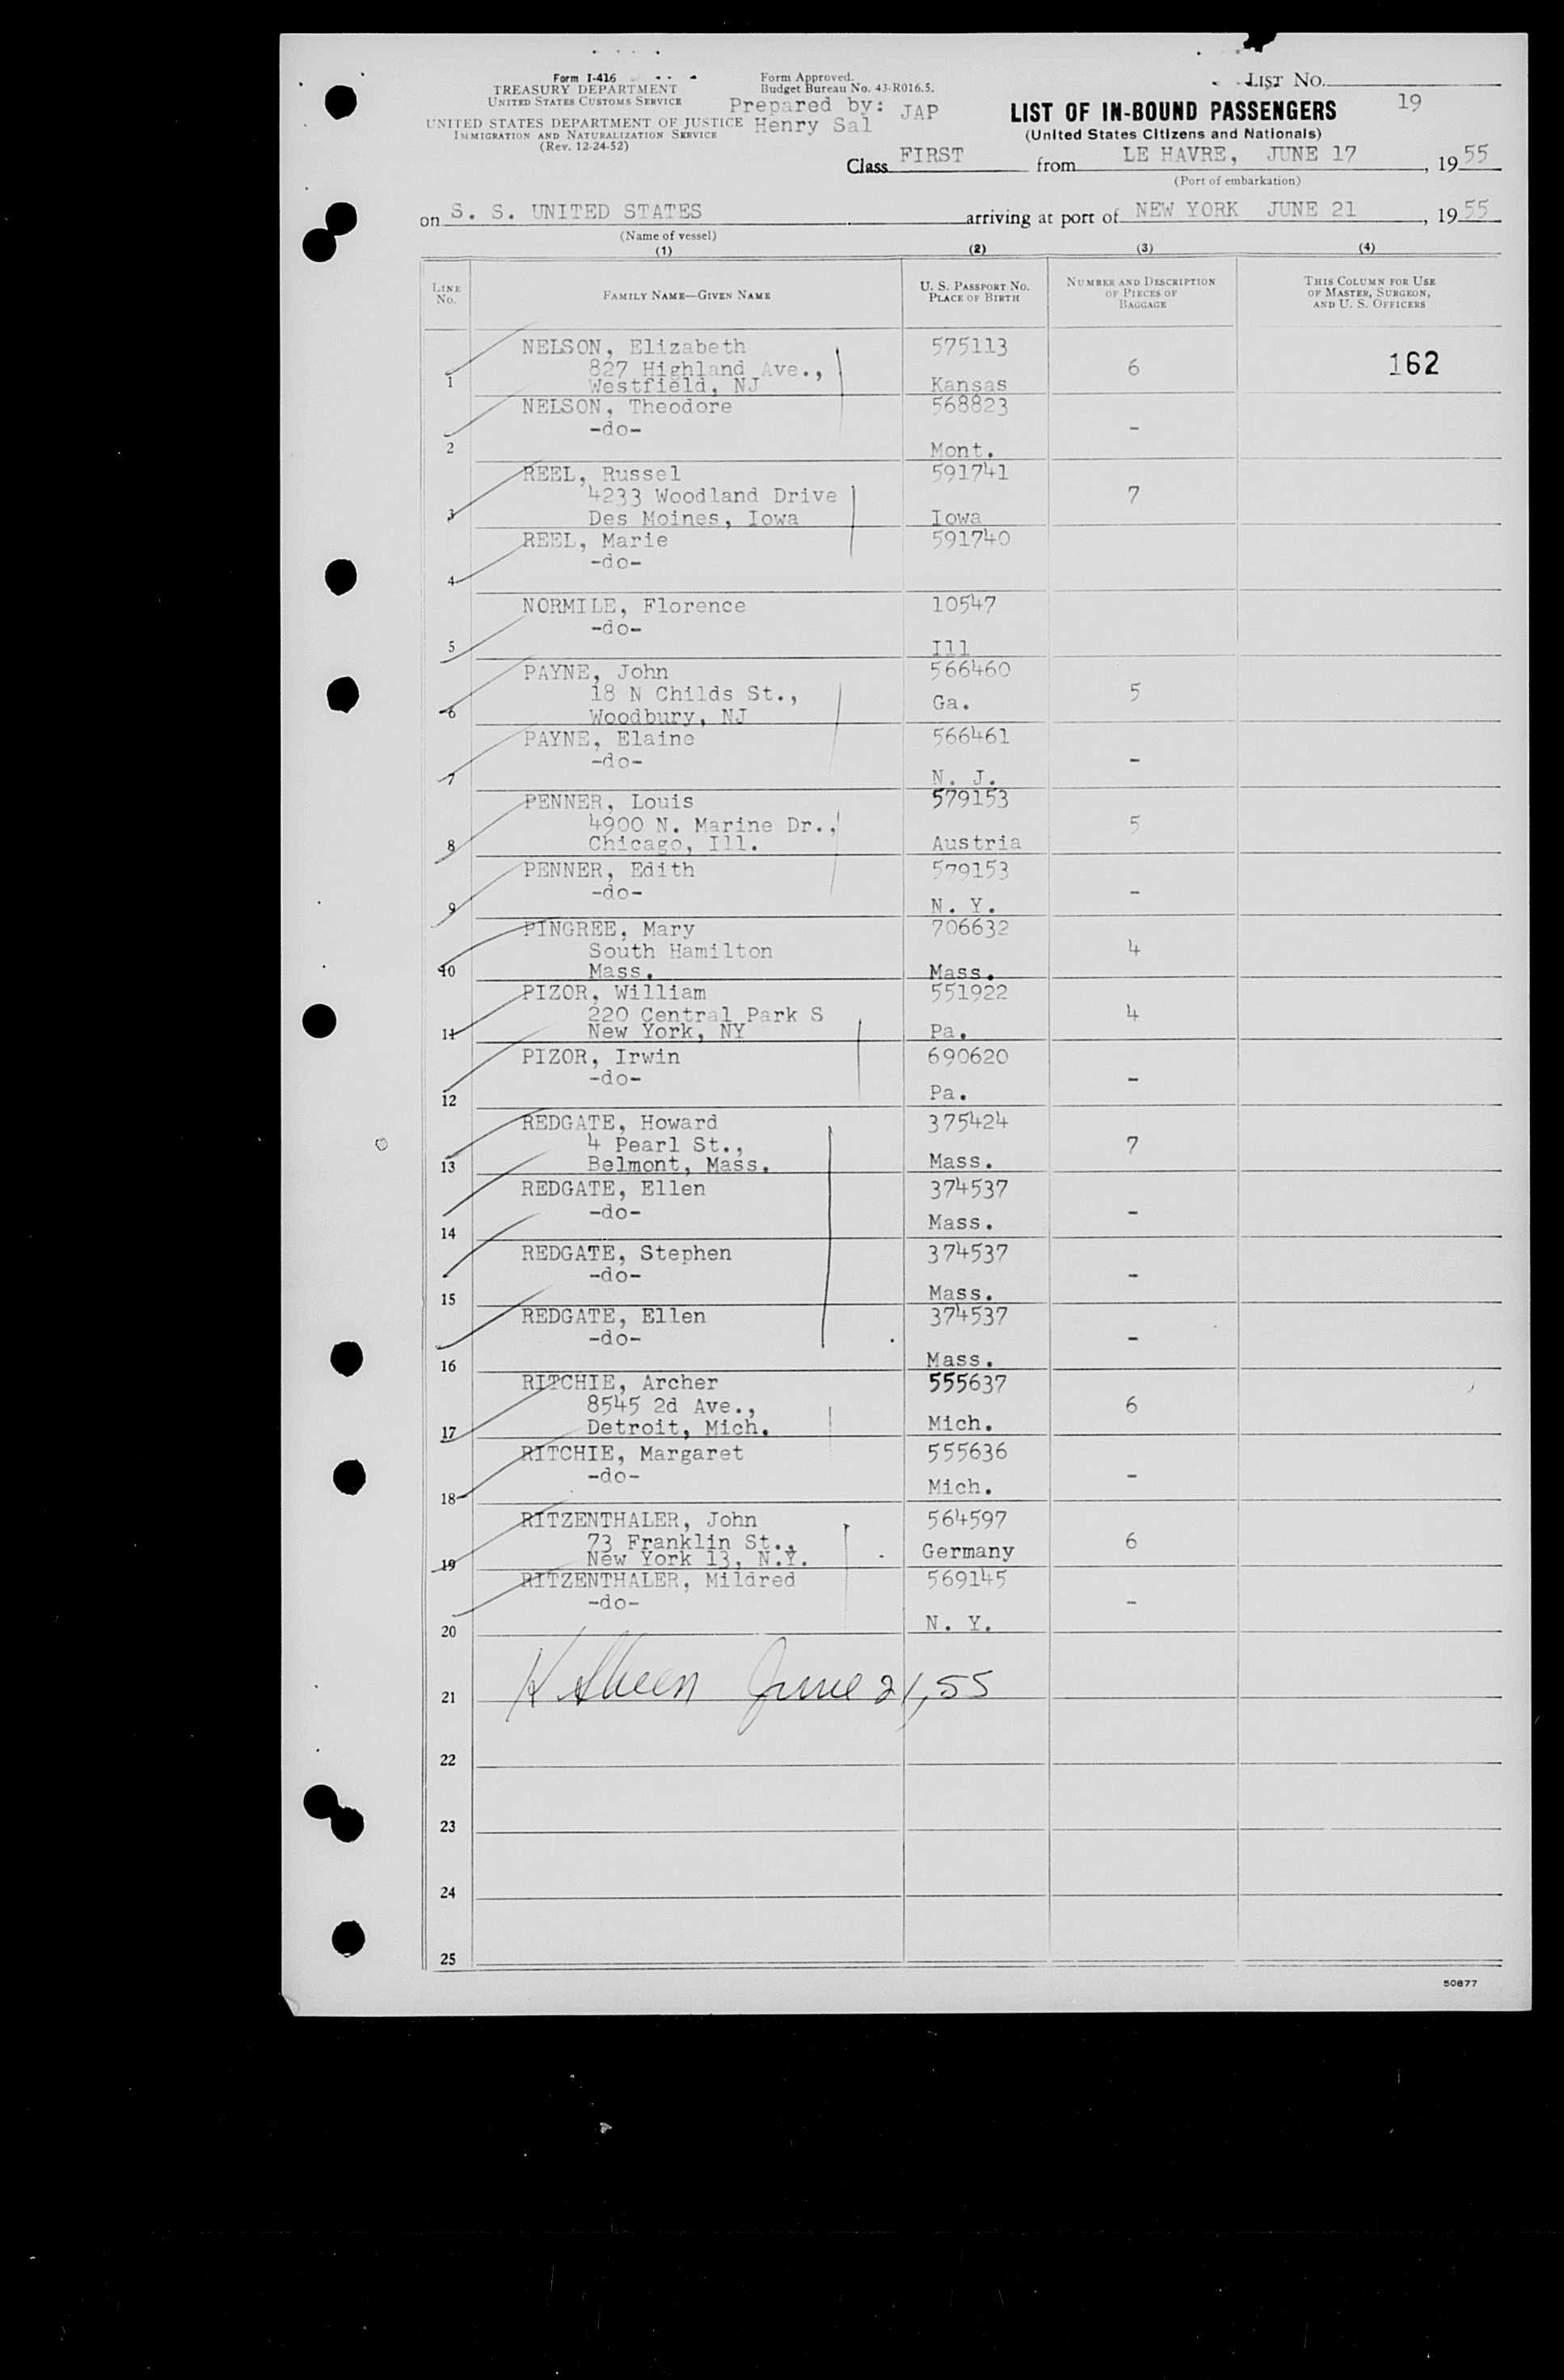 Form I-416
TREASURY DEPARTMENT
UNITED STATES CUSTOMS SERVICE
UNITED STATES DEPARTMENT OF JUSTICE
IMMIGRATION AND NATURALIZATION SERVICE
(Rev. 12-24-52)
Form Approved.
Budget Bureau No. 43-R016.5.
Prepared by: JAP
Henry Sal
LIST NO.
19
LIST OF IN-BOUND PASSENGERS
(United States Citizens and Nationals)
Class FIRST from LE HAVRE, JUNE 17, 1955
(Port of embarkation)
on S. S. UNITED STATES arriving at port of NEW YORK JUNE 21, 1955
(Name of vessel)
(1) (2) (3) (4)
LINE NO. FAMILY NAME—GIVEN NAME U. S. PASSPORT NO. PLACE OF BIRTH NUMBER AND DESCRIPTION OF PIECES OF BAGGAGE THIS COLUMN FOR USE OF MASTER, SURGEON, AND U. S. OFFICERS
NELSON, Elizabeth 575113
827 Highland Ave., 6 162
1 Westfield, NJ Kansas
NELSON, Theodore 568823
-do- -
2 Mont.
REEL, Russel 591741
4233 Woodland Drive 7
3 Des Moines, Iowa Iowa
REEL, Marie 591740
-do-
4
NORMILE, Florence 10547
-do-
5 Ill
PAYNE, John 566460
18 N Childs St., Ga. 5
6 Woodbury, NJ
PAYNE, Elaine 566461
-do- -
7 N. J.
PENNER, Louis 579153
4900 N. Marine Dr., 5
8 Chicago, Ill. Austria
PENNER, Edith 579153
-do- -
9 N. Y.
PINGREE, Mary 706632
South Hamilton 4
10 Mass. Mass.
PIZOR, William 551922
220 Central Park S 4
11 New York, NY Pa.
PIZOR, Irwin 690620
-do- -
12 Pa.
REDGATE, Howard 375424
4 Pearl St., 7
13 Belmont, Mass. Mass.
REDGATE, Ellen 374537
-do- -
14 Mass.
REDGATE, Stephen 374537
-do- -
15 Mass.
REDGATE, Ellen 374537
-do- -
16 Mass.
RITCHIE, Archer 555637
8545 2d Ave., 6
17 Detroit, Mich. Mich.
RITCHIE, Margaret 555636
-do- -
18 Mich.
RITZENTHALER, John 564597
73 Franklin St., 6
19 New York 13, N.Y. Germany
RITZENTHALER, Mildred 569145
-do- -
20 N. Y.
21 June 21, 55
22
23
24
25
50877